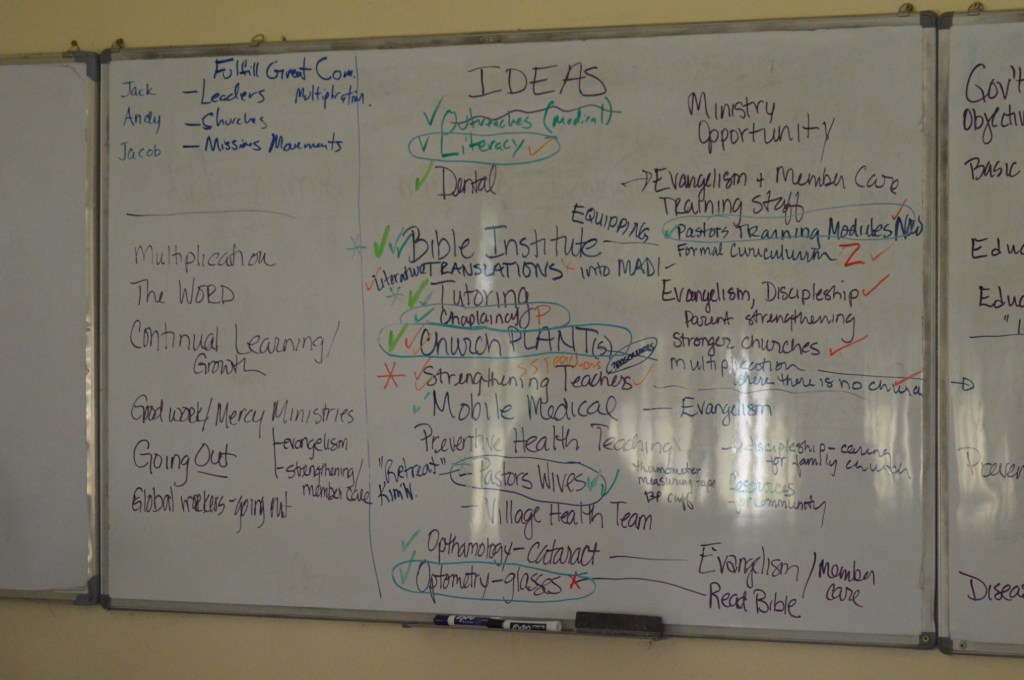 Fulfill Great Com.
Jack
- Leaders Multiplication.
Andy
- Churches
Jacob
- Missions Movements
Multiplication
The WORD
Continual Learning/
Growth
Good work/Mercy Ministries
Going Out
- evangelism
- strengthening/
member care
Global workers - going out
IDEAS
Outreaches (medical)
Literacy
Dental
Bible Institute - EQUIPPING
Literature TRANSLATIONS into MADI -
Tutoring
Chaplaincy P
Church PLANT(s)
SS Teachers
Strengthening Teachers
Mobile Medical - Evangelism
Preventive Health Teaching
"Retreat" - Pastors Wives
Kim W.
- Village Health Team
Opthamology - cataract
Optometry - glasses *
Ministry
Opportunity
→ Evangelism + Member Care
Training Staff
Pastors Training Modules Now
Formal Curuculuum Z
Evangelism, Discipleship
Parent strengthening
Stronger churches
multiplication
where there is no church
→ discipleship - caring
for family church
thermometer
measuring tape
BP cuff
Resources
for community
Evangelism / member
care
Read Bible
Gov't
Objectiv
Basic
Educ
Educ
"1
Preven
Diseas